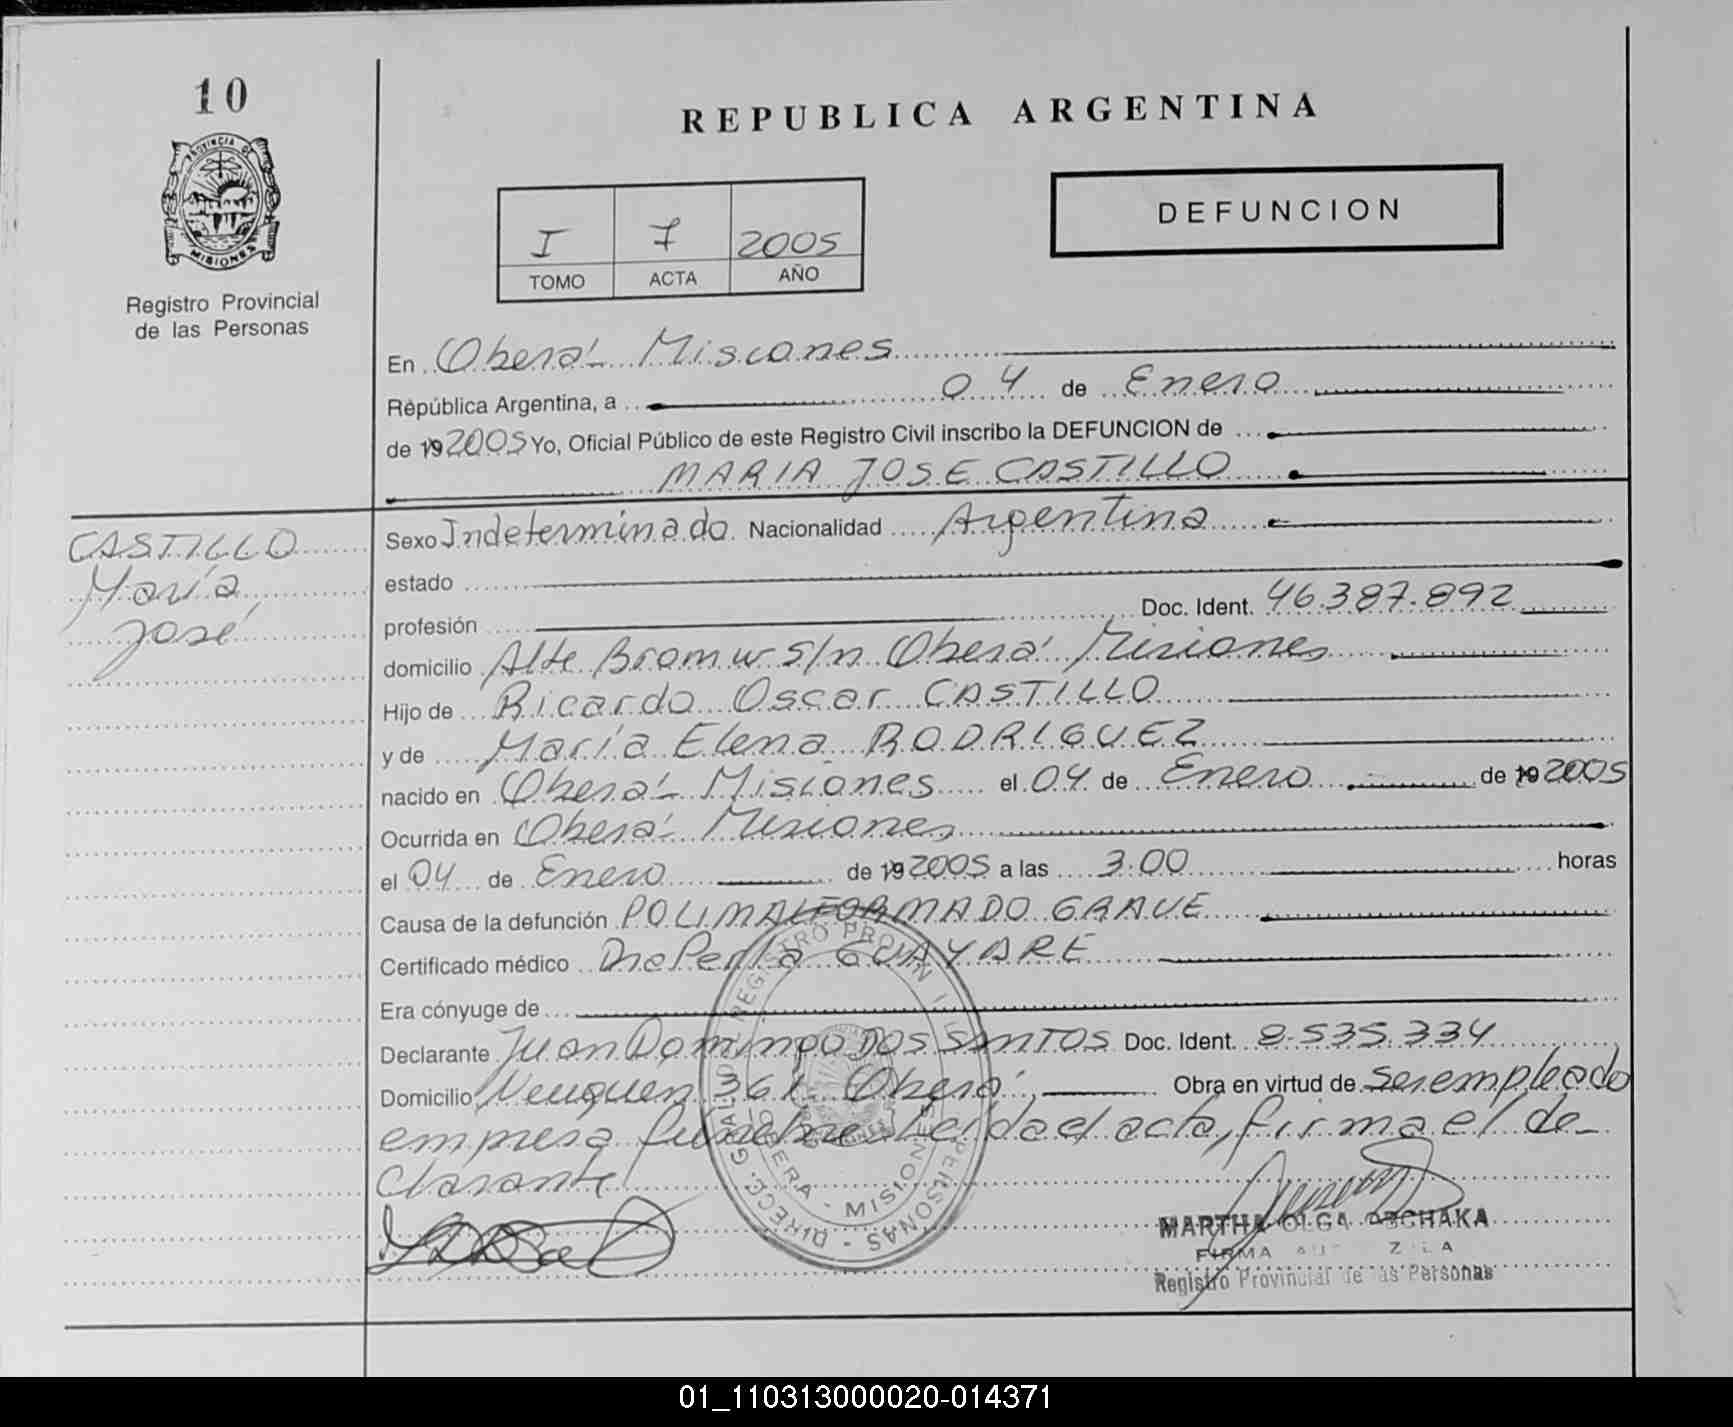 10
PROVINCIA DE
MISIONES
Registro Provincial
de las Personas
REPUBLICA ARGENTINA
I 7 2005
TOMO ACTA AÑO
DEFUNCION
En Oberá Misiones
República Argentina, a 04 de Enero
de 19 2005 Yo, Oficial Público de este Registro Civil inscribo la DEFUNCION de
MARIA JOSE CASTILLO
CASTILLO
María
José
Sexo Indeterminado Nacionalidad Argentina
estado
profesión Doc. Ident. 46.387.892
domicilio Alte Brown s/n Oberá Misiones
Hijo de Ricardo Oscar CASTILLO
y de María Elena RODRIGUEZ
nacido en Oberá Misiones el 04 de Enero de 19 2005
Ocurrida en Oberá Misiones
el 04 de Enero de 19 2005 a las 3:00 horas
Causa de la defunción POLIMALFORMADO GRAVE
Certificado médico Perla GUAYARE
Era cónyuge de
Declarante Juan Domingo DOS SANTOS Doc. Ident. 8.535.334
Domicilio Neuquen 361 Oberá, Obra en virtud de ser empleado
empresa fúnebre Leída el acta, firma el de-
clarante
DIRECC. GRAL. DEL REGISTRO PROVINCIAL DE LAS PERSONAS
OBERA - MISIONES
MARTHA OLGA
FIRMA AUTORIZADA
Registro Provincial de las Personas
01_110313000020-014371